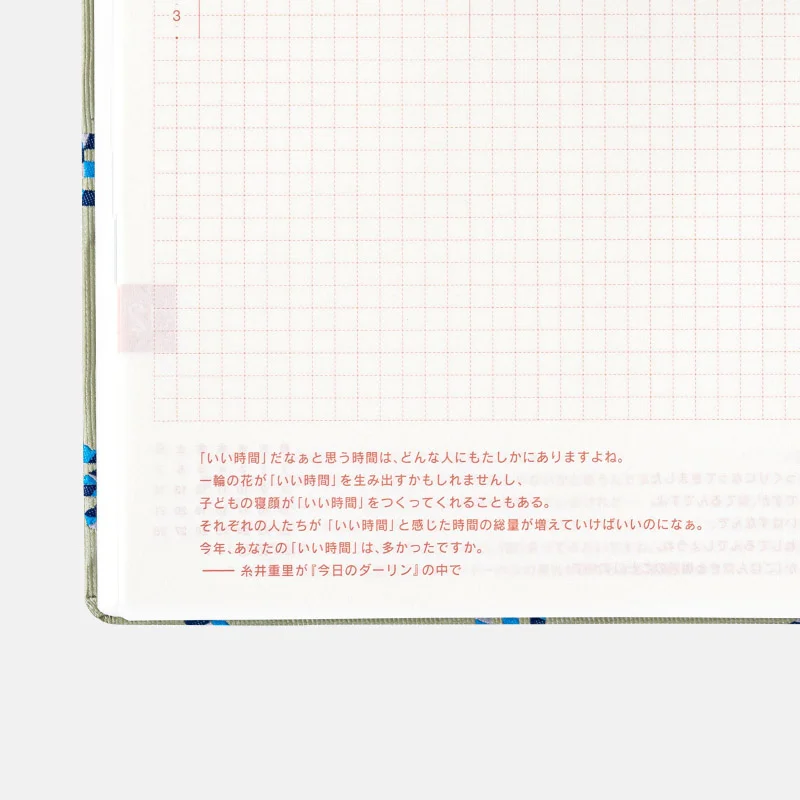 3
「いい時間」だなぁと思う時間は、どんな人にもたしかにありますよね。
一輪の花が「いい時間」を生み出すかもしれませんし、
子どもの寝顔が「いい時間」をつくってくれることもある。
それぞれの人たちが「いい時間」と感じた時間の総量が増えていけばいいのになぁ。
今年、あなたの「いい時間」は、多かったですか。
―― 糸井重里が『今日のダーリン』の中で